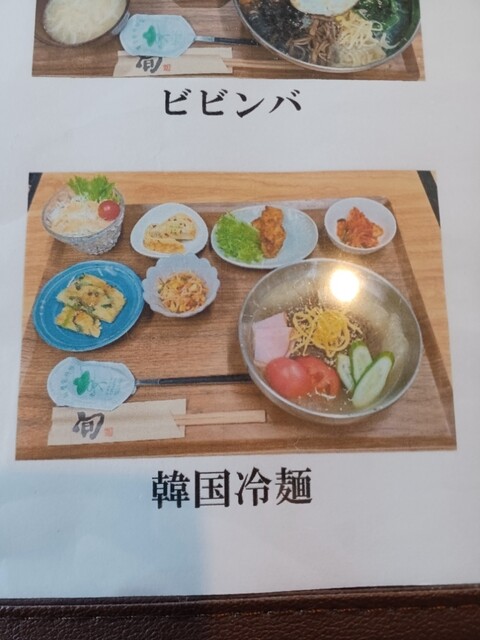 旬
ビビンバ
旬
韓国冷麺